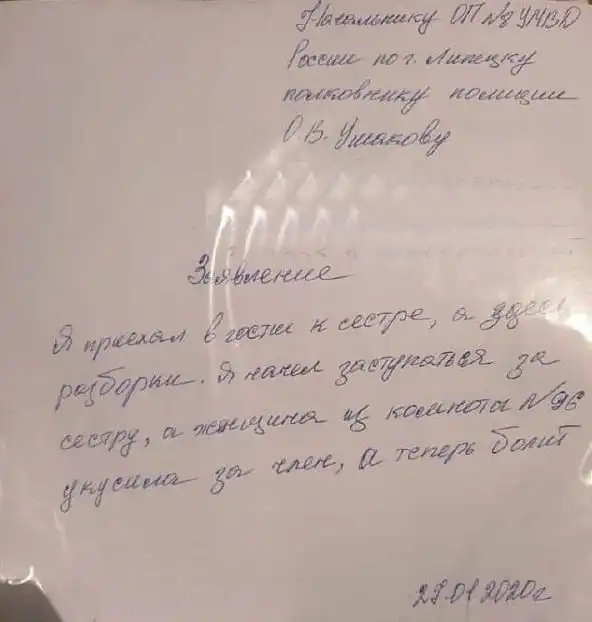 Начальнику ОП №8 УМВД
России по г. Липецку
полковнику полиции
О.В. Ушакову
Заявление
Я приехал в гости к сестре, а здесь
разборки. Я начел заступаться за
сестру, а женщина из комноты №96
укусила за член, а теперь болит
29.01.2020г